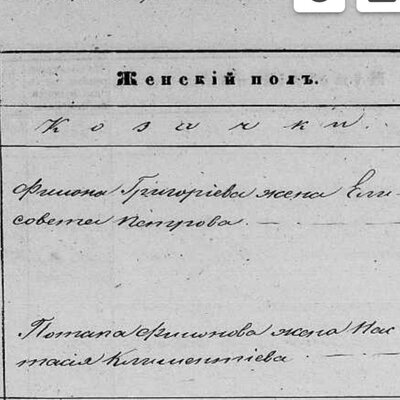 Женскій полъ.
Козачки.
Филона Григоріева жена Ели-
совета Петрова.
Потапа Филонова жена Нас
тасія Климентіева